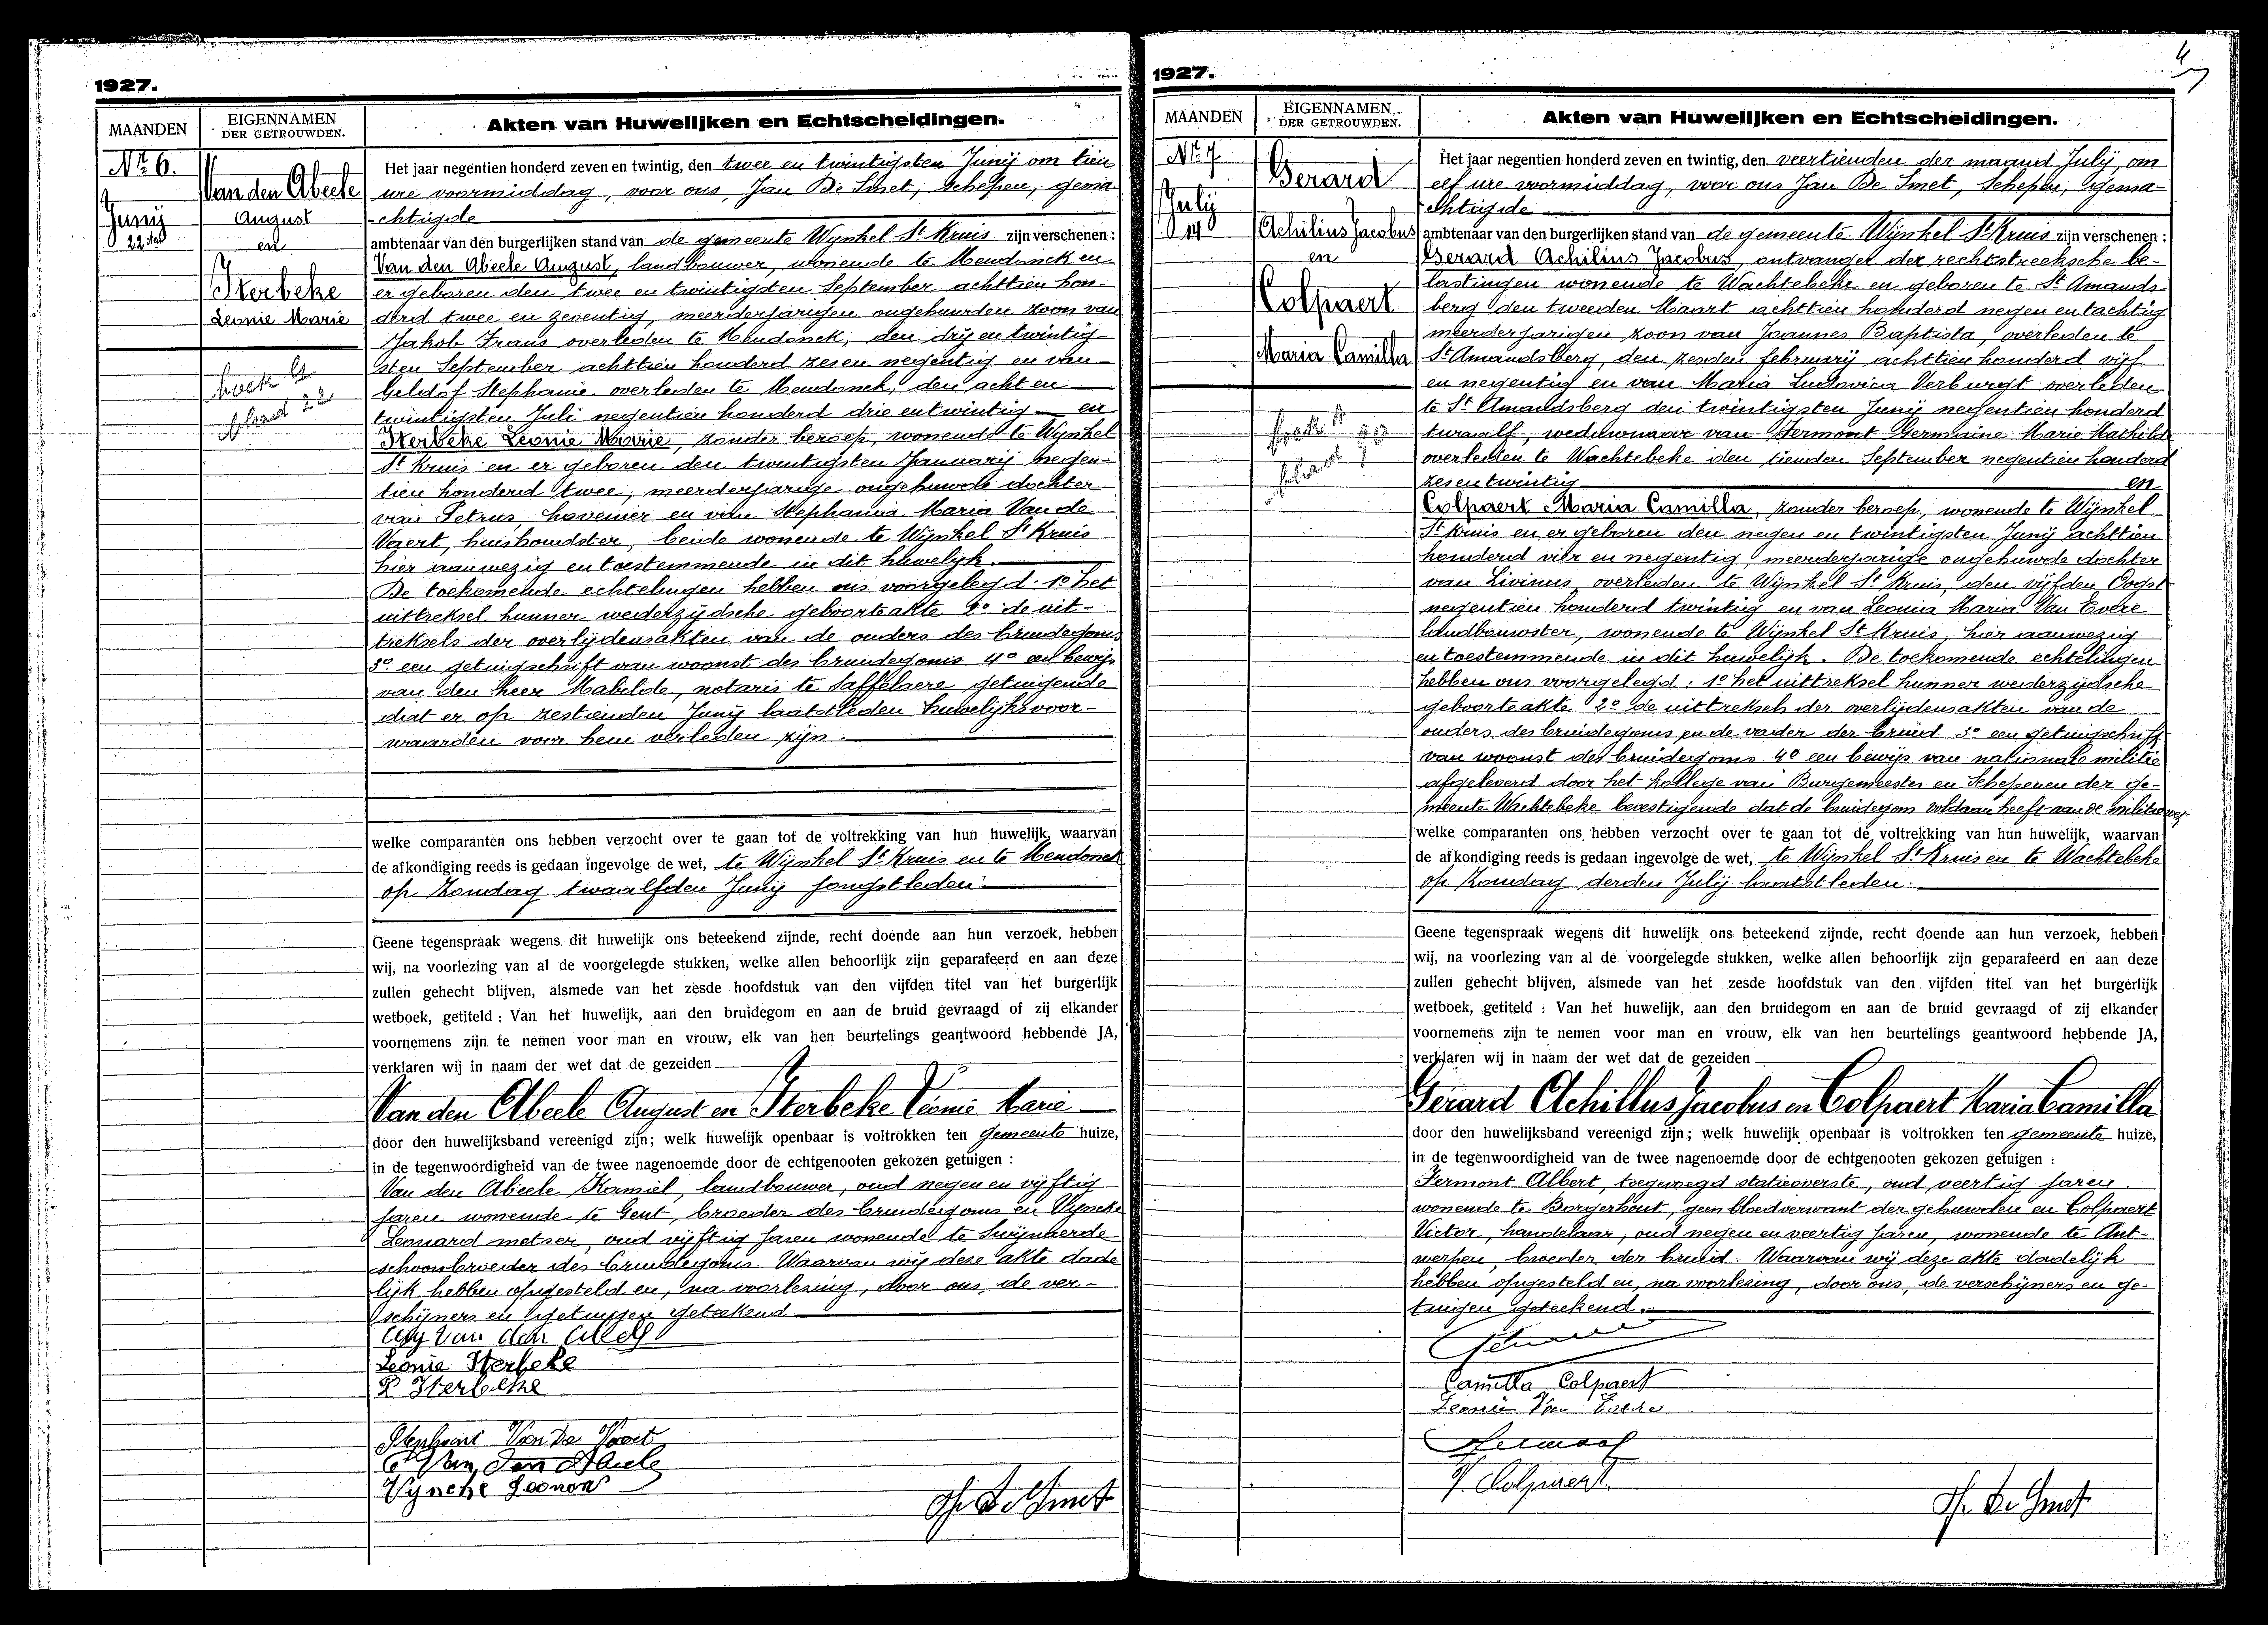 1927.
MAANDEN
EIGENNAMEN
DER GETROUWDEN.
Akten van Huwelijken en Echtscheidingen.
Nr. 6.
Junij
22sten
Van den Abeele
August
en
Sterbeke
Leonie Marie
boek
blad 22
Het jaar negentien honderd zeven en twintig, den twee en twintigsten Junij om tien
ure voormiddag, voor ons, Jan De Smet, schepen, gema
chtigde
ambtenaar van den burgerlijken stand van de gemeente Wynkel St Kruis zijn verschenen :
Van den Abeele August, landbouwer, wonende te Mendonck en
er geboren den twee en twintigsten September achttien hon-
derd twee en zeventig, meerderjarigen ongehuwden zoon van
Jakob Frans overleden te Mendonck, den drij en twintig-
sten September achttien honderd zes en negentig en van
Geldof Stephanie overleden te Mendonck, den acht en
twintigsten Juli negentien honderd drie en twintig en
Sterbeke Leonie Marie, zonder beroep, wonende te Wynkel
St Kruis en er geboren den twintigsten Januarij negen-
tien honderd twee, meerderjarige ongehuwde dochter
van Petrus, hovenier en van Stephania Maria Van de
Voert, huishoudster, beide wonende te Wynkel St Kruis
hier aanwezig en toestemmende in dit huwelijk.
De toekomende echtelingen hebben ons voorgelegd: 1o het
uittreksel hunner wederzydsche geboorteakte 2o de uit-
treksels der overlijdensakten van de ouders des bruidegoms
3o een getuigschrift van woonst des bruidegoms 4o een bewijs
van den heer Mabilde, notaris te Saffelaere getuigende
dat er op zestienden Junij laatstleden huwelijksvoor-
waarden voor hem verleden zijn.
welke comparanten ons hebben verzocht over te gaan tot de voltrekking van hun huwelijk, waarvan
de afkondiging reeds is gedaan ingevolge de wet, te Wijnkel St Kruis en te Mendonck
op Zondag twaalfden Junij jongstleden.
Geene tegenspraak wegens dit huwelijk ons beteekend zijnde, recht doende aan hun verzoek, hebben
wij, na voorlezing van al de voorgelegde stukken, welke allen behoorlijk zijn geparafeerd en aan deze
zullen gehecht blijven, alsmede van het zesde hoofdstuk van den vijfden titel van het burgerlijk
wetboek, getiteld : Van het huwelijk, aan den bruidegom en aan de bruid gevraagd of zij elkander
voornemens zijn te nemen voor man en vrouw, elk van hen beurtelings geantwoord hebbende JA,
verklaren wij in naam der wet dat de gezeiden
Van den Abeele August en Sterbeke Léonie Marie
door den huwelijksband vereenigd zijn; welk huwelijk openbaar is voltrokken ten gemeente huize,
in de tegenwoordigheid van de twee nagenoemde door de echtgenooten gekozen getuigen :
Van den Abeele Kamiel, landbouwer, oud negen en vyftig
jaren wonende te Gent, broeder des bruidegoms en Vyncke
Leonard metser, oud vijftig jaren wonende te Swijnaerde
schoonbroeder des bruidegoms. Waarvan wij deze akte dade
lijk hebben opgesteld en, na voorlezing, door ons, de ver-
schijners en getuigen geteekend
Aug Van den Abeele
Leonie Sterbeke
P Sterbeke
Stephani Van De Voert
C Van Den Abeele
Vyncke Leonar
J. De Smet
1927.
MAANDEN
EIGENNAMEN
DER GETROUWDEN.
Akten van Huwelijken en Echtscheidingen.
Nr. 7
July
14
Gerard
Achilius Jacobus
en
Colpaert
Maria Camilla
boek
blad
Het jaar negentien honderd zeven en twintig, den veertienden der maand July, om
elf ure voormiddag, voor ons Jan De Smet, Schepen, gema-
chtigde
ambtenaar van den burgerlijken stand van de gemeente Wijnkel St Kruis zijn verschenen :
Gerard Achilius Jacobus, ontvanger der rechtstreeksche be-
lastingen wonende te Wachtebeke en geboren te St Amands-
berg den tweeden Maart achttien honderd negen en tachtig
meerderjarigen zoon van Joannes Baptista, overleden te
St Amandsberg, den zesden februarij achttien honderd vijf
en negentig en van Maria Ludovica Verburgt overleden
te St Amandsberg den twintigsten Junij negentien honderd
twaalf, weduwnaar van Fermont Germaine Marie Mathilde
overleden te Wachtebeke den tienden September negentien honderd
zes en twintig en
Colpaert Maria Camilla, zonder beroep, wonende te Wijnkel
St Kruis en er geboren den negen en twintigsten Junij achttien
honderd vier en negentig, meerderjarige ongehuwde dochter
van Livinus, overleden te Wijnkel St Kruis, den vijfden Oogst
negentien honderd twintig en van Leonia Maria Van Evere
landbouwster, wonende te Wijnkel St Kruis, hier aanwezig
en toestemmende in dit huwelijk. De toekomende echtelingen
hebben ons voorgelegd: 1o het uittreksel hunner wederzijdsche
geboorteakte 2o de uittreksels der overlijdensakten van de
ouders des bruidegoms en de vader der bruid 3o een getuigschrift
van woonst des bruidegoms 4o een bewijs van nationale militie
afgeleverd door het kollege van Burgemeester en Schepenen der ge-
meente Wachtebeke bevestigende dat de bruidegom voldaan heeft aan de militiewet
welke comparanten ons hebben verzocht over te gaan tot de voltrekking van hun huwelijk, waarvan
de afkondiging reeds is gedaan ingevolge de wet, te Wijnkel St Kruis en te Wachtebeke
op Zondag derden Julij laatstleden.
Geene tegenspraak wegens dit huwelijk ons beteekend zijnde, recht doende aan hun verzoek, hebben
wij, na voorlezing van al de voorgelegde stukken, welke allen behoorlijk zijn geparafeerd en aan deze
zullen gehecht blijven, alsmede van het zesde hoofdstuk van den vijfden titel van het burgerlijk
wetboek, getiteld : Van het huwelijk, aan den bruidegom en aan de bruid gevraagd of zij elkander
voornemens zijn te nemen voor man en vrouw, elk van hen beurtelings geantwoord hebbende JA,
verklaren wij in naam der wet dat de gezeiden
Gerard Achillus Jacobus en Colpaert Maria Camilla
door den huwelijksband vereenigd zijn; welk huwelijk openbaar is voltrokken ten gemeente huize,
in de tegenwoordigheid van de twee nagenoemde door de echtgenooten gekozen getuigen :
Fermont Albert, toegevoegd statieoverste, oud veertig jaren
wonende te Borgerhout, geen bloedverwant der gehuwden en Colpaert
Victor, handelaar, oud negen en veertig jaren, wonende te Ant-
werpen, broeder der bruid. Waarvan wij deze akte dadelijk
hebben opgesteld en, na voorlezing, door ons, de verschijners en ge-
tuigen geteekend.
Camilla Colpaert
Leonie Van Evere
V. Colpaert.
J. De Smet